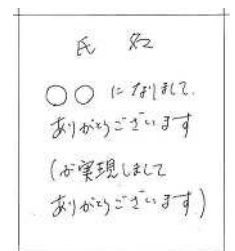 氏名
○○になりまして、
ありがとうございます
(が実現しまして
ありがとうございます)